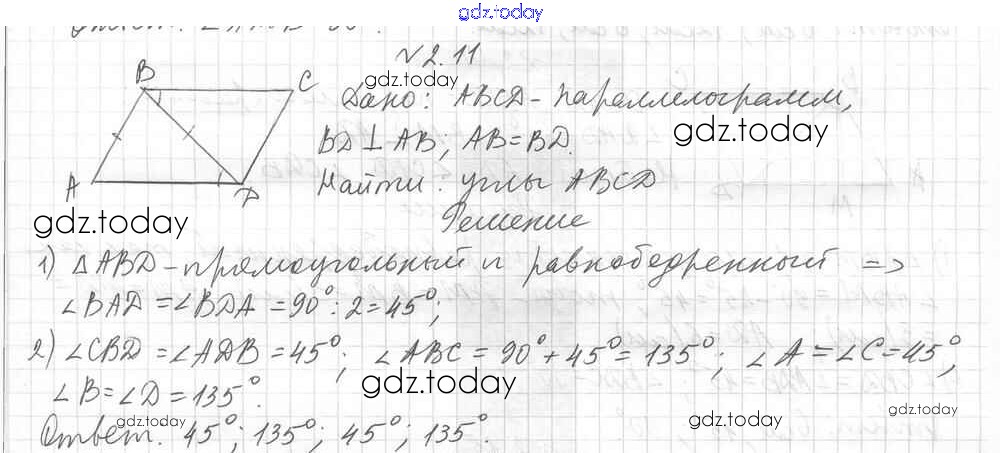 gdz.today
N 2.11
gdz.today
B C
A D
Дано: ABCD - параллелограмм,
gdz.today
BD ⊥ AB; AB = BD.
Найти: углы ABCD
gdz.today
Решение
1) △ABD - прямоугольный и равнобедренный =>
∠BAD = ∠BDA = 90° : 2 = 45°;
2) ∠CBD = ∠ADB = 45°; ∠ABC = 90° + 45° = 135°; ∠A = ∠C = 45°,
gdz.today
∠B = ∠D = 135°.
gdz.today gdz.today gdz.today
Ответ. 45°; 135°; 45°; 135°.